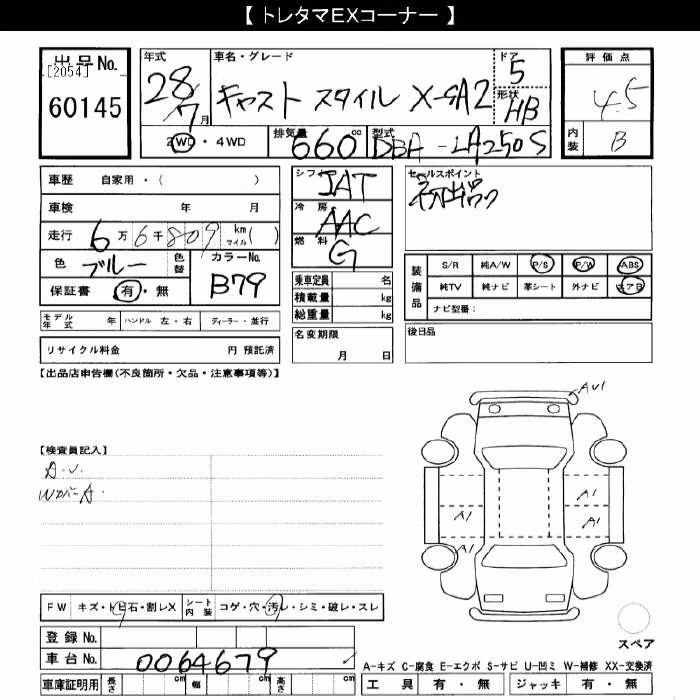 【 トレタマEXコーナー 】
出品No.
[2054]
60145
年式
28/7月
車名・グレード
キャスト スタイル X-SA2
ドア
5
形状
HB
評価点
4.5
内装
B
2WD ・ 4WD
排気量
660cc
型式
DBA-LA250S
車歴 自家用・( )
車検 年 月
走行 6万6千809 km マイル( )
色 ブルー 色替
カラーNo.
B79
保証書 有・無
モデル年式 年 ハンドル 左・右 ディーラー・並行
リサイクル料金 円 預託済
シフト
IAT
冷房
AAC
燃料
G
乗車定員 名
積載量 kg
総重量 kg
名変期限
月 日
セールスポイント
初出品
装備品
S/R 純A/W P/S P/W ABS
純TV 純ナビ 革シート 外ナビ エアB
ナビ型番:
後日品
【出品店申告欄(不良箇所・欠品・注意事項等)】
【検査員記入】
A.U.
WカバーA
AU1
A1
A1
A1
A1
FW キズ・トビ石・割レX
シート内装 コゲ・穴・汚レ・シミ・破レ・スレ
登録No.
車台No. 0064679
車庫証明用 長さ cm 幅 cm 高さ cm
スペア
A-キズ C-腐食 E-エクボ S-サビ U-凹ミ W-補修 XX-交換済
工具 有・無 ジャッキ 有・無